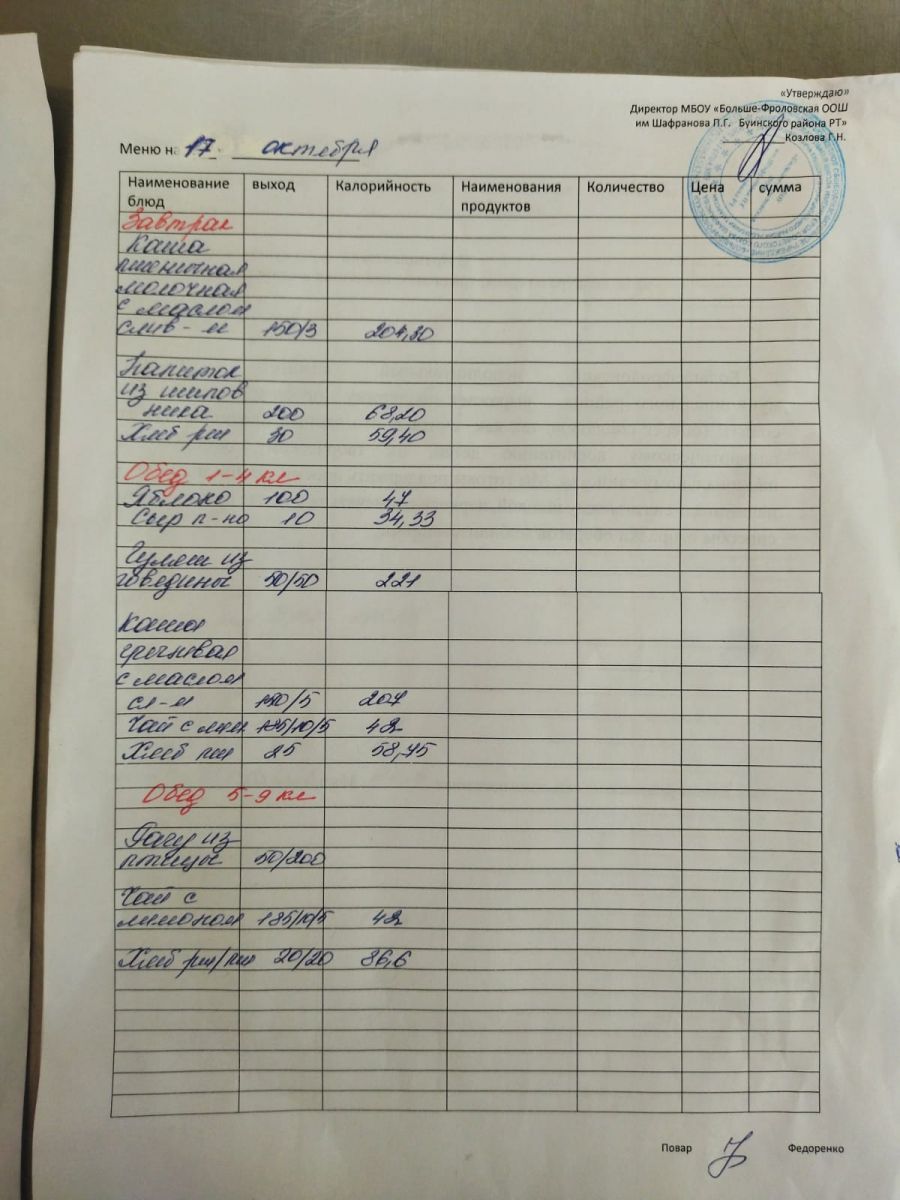 «Утверждаю»
Директор МБОУ «Больше-Фроловская ООШ
им Шафранова П.Г. Буинского района РТ»
Козлова Г.Н.
Меню на 17 октября
Наименование блюд выход Калорийность Наименования продуктов Количество Цена сумма
Завтрак
Каша
пшеничная
молочная
с маслом
слив-м 150/3 204,30
Напиток
из шипов
ника 200 68,20
Хлеб рж 30 59,40
Обед 1-4 кл
Яблоко 100 47
Сыр п-но 10 34,33
Гуляш из
говядины 50/50 221
Каша
гречневая
с маслом
сл-м 150/5 207
Чай с лим 185/10/5 42
Хлеб пш 25 58,75
Обед 5-9 кл
Рагу из
птицы 50/200
Чай с
лимоном 185/10/5 42
Хлеб рж/пш 20/20 86,6
Повар Федоренко